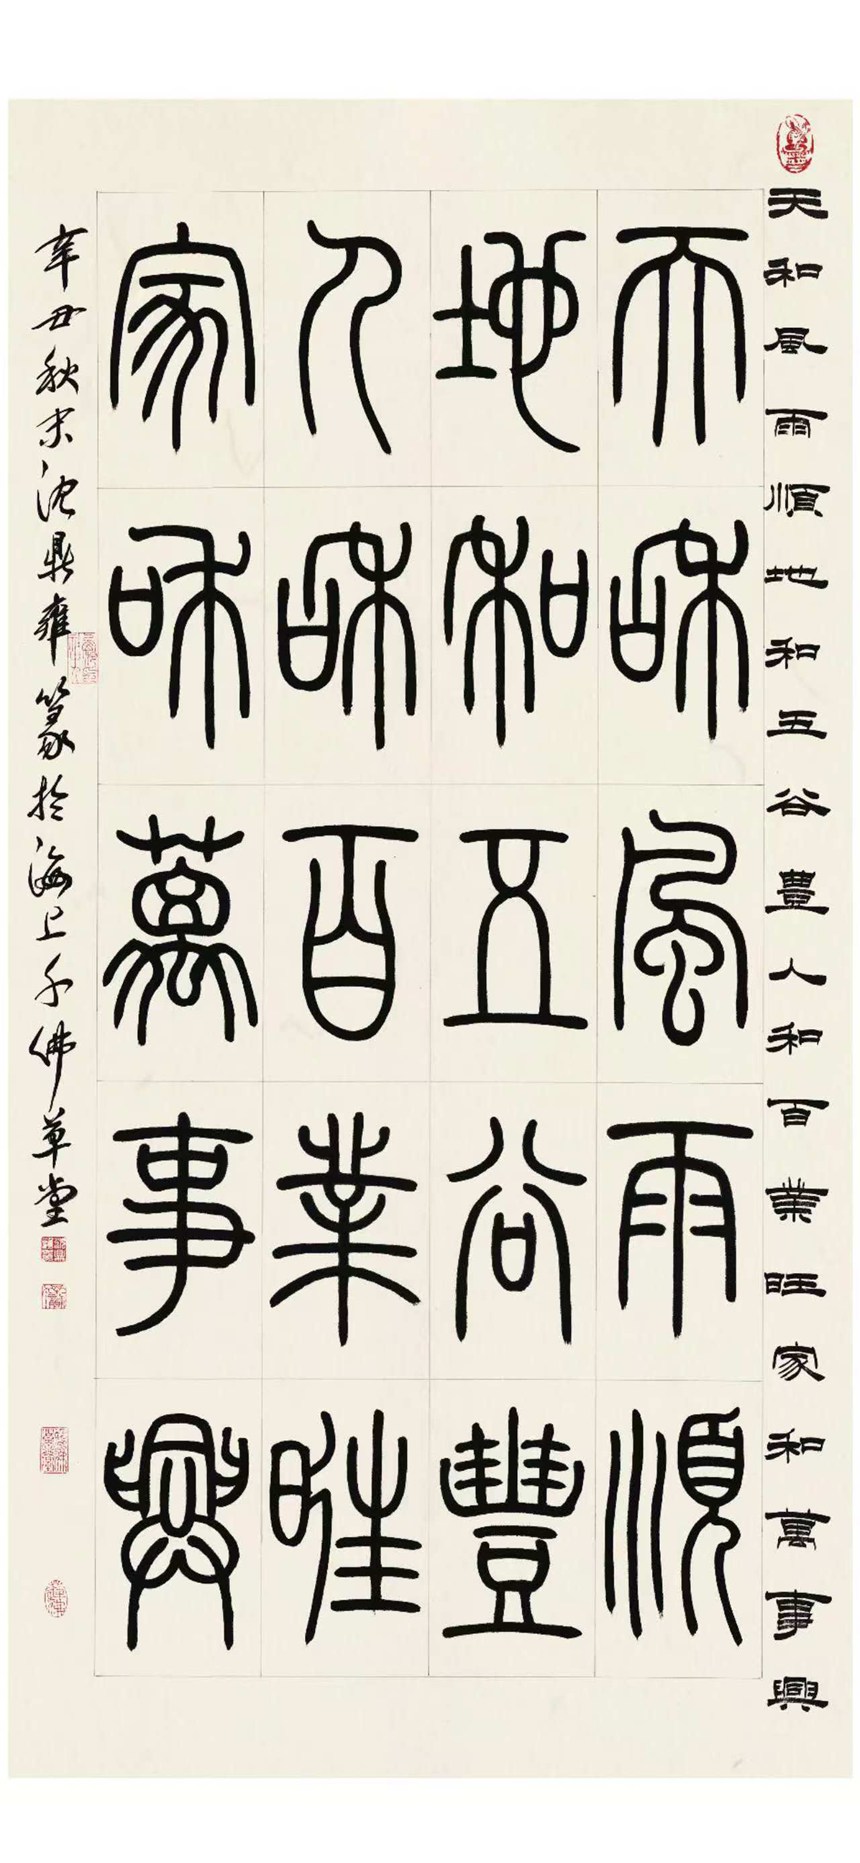 天和風雨順地和五谷豊人和百業旺家和萬事興
天和風雨順
地和五谷豐
人和百業旺
家和萬事興
辛丑秋末沈鼎雍篆於海上千佛草堂